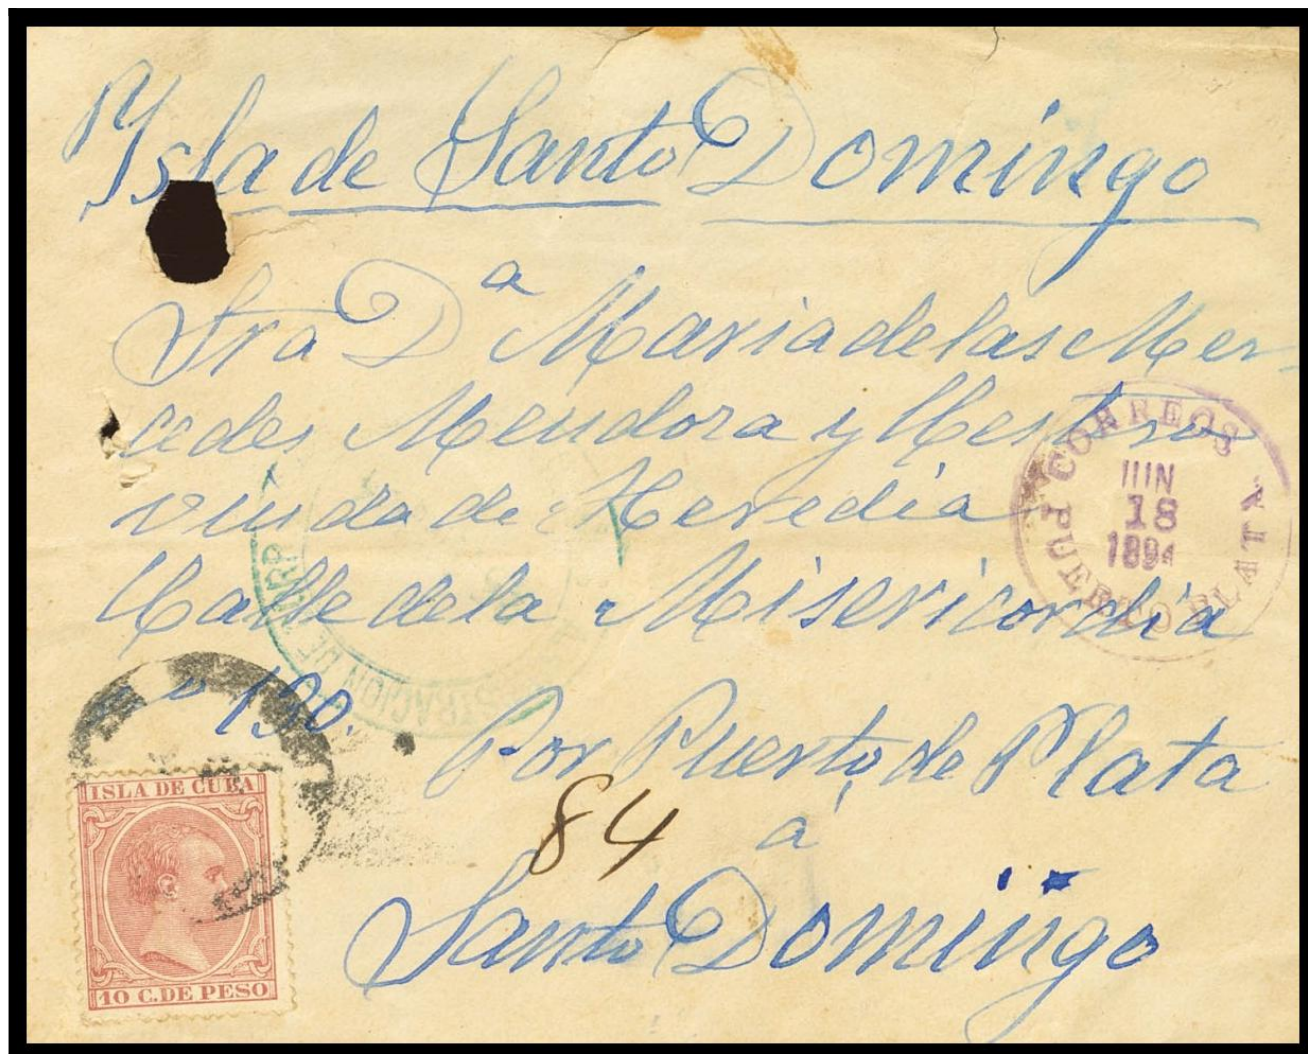 Isla de Santo Domingo
Sra Dª Maria de las Mer-
cedes Mendoza y Mestro
viuda de Heredia
Calle de la Misericordia
nº 190.
Por Puerto de Plata
á
Santo Domingo
84
CORREOS
JUN
18
1894
PUERTO PLATA
STRACION DE
ISLA DE CUBA
10 C. DE PESO